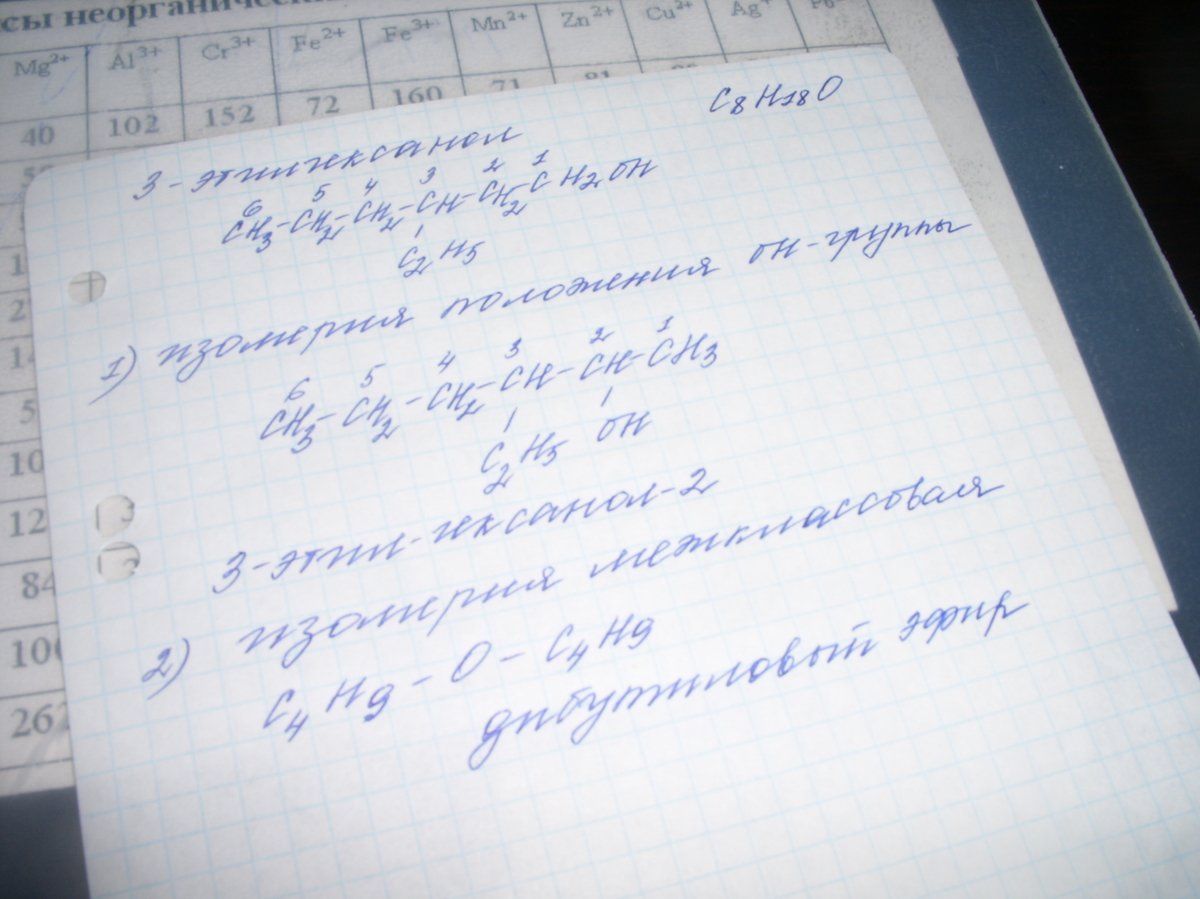 сы неорганически
Mg²⁺ Al³⁺ Cr³⁺ Fe²⁺ Fe³⁺ Mn²⁺ Zn²⁺ Cu²⁺ Ag⁺
40 102 152 72 160 71 81
C₈H₁₈O
3-этилгексанол
6 5 4 3 2 1
CH₃-CH₂-CH₂-CH-CH₂-CH₂OH
C₂H₅
1) изомерия положения OH-группы
6 5 4 3 2 1
CH₃-CH₂-CH₂-CH-CH-CH₃
C₂H₅ OH
3-этил-гексанол-2
2) изомерия межклассовая
C₄H₉-O-C₄H₉
дибутиловый эфир
84
262